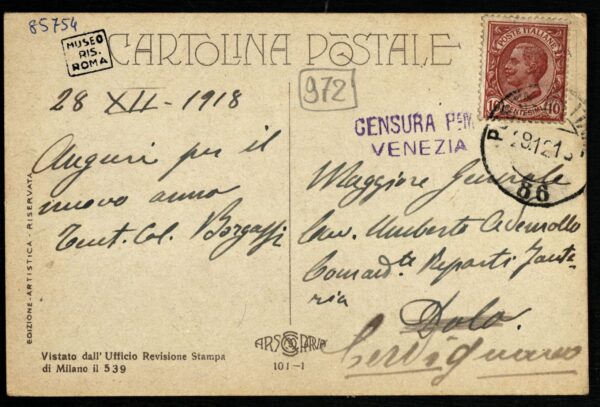 85754
MUSEO
RIS.
ROMA
CARTOLINA POSTALE
972
28 XII - 1918
Auguri per il
nuovo anno
Tent. Col.
CENSURA
VENEZIA
POSTE ITALIANE
10 CENTESIMI 10
86
Maggiore Generale
Cav. Umberto
Comand.te Reparti Fante-
ria
Dolo
Cervignano
EDIZIONE-ARTISTICA - RISERVATA
Vistato dall' Ufficio Revisione Stampa
di Milano il 539
101-1